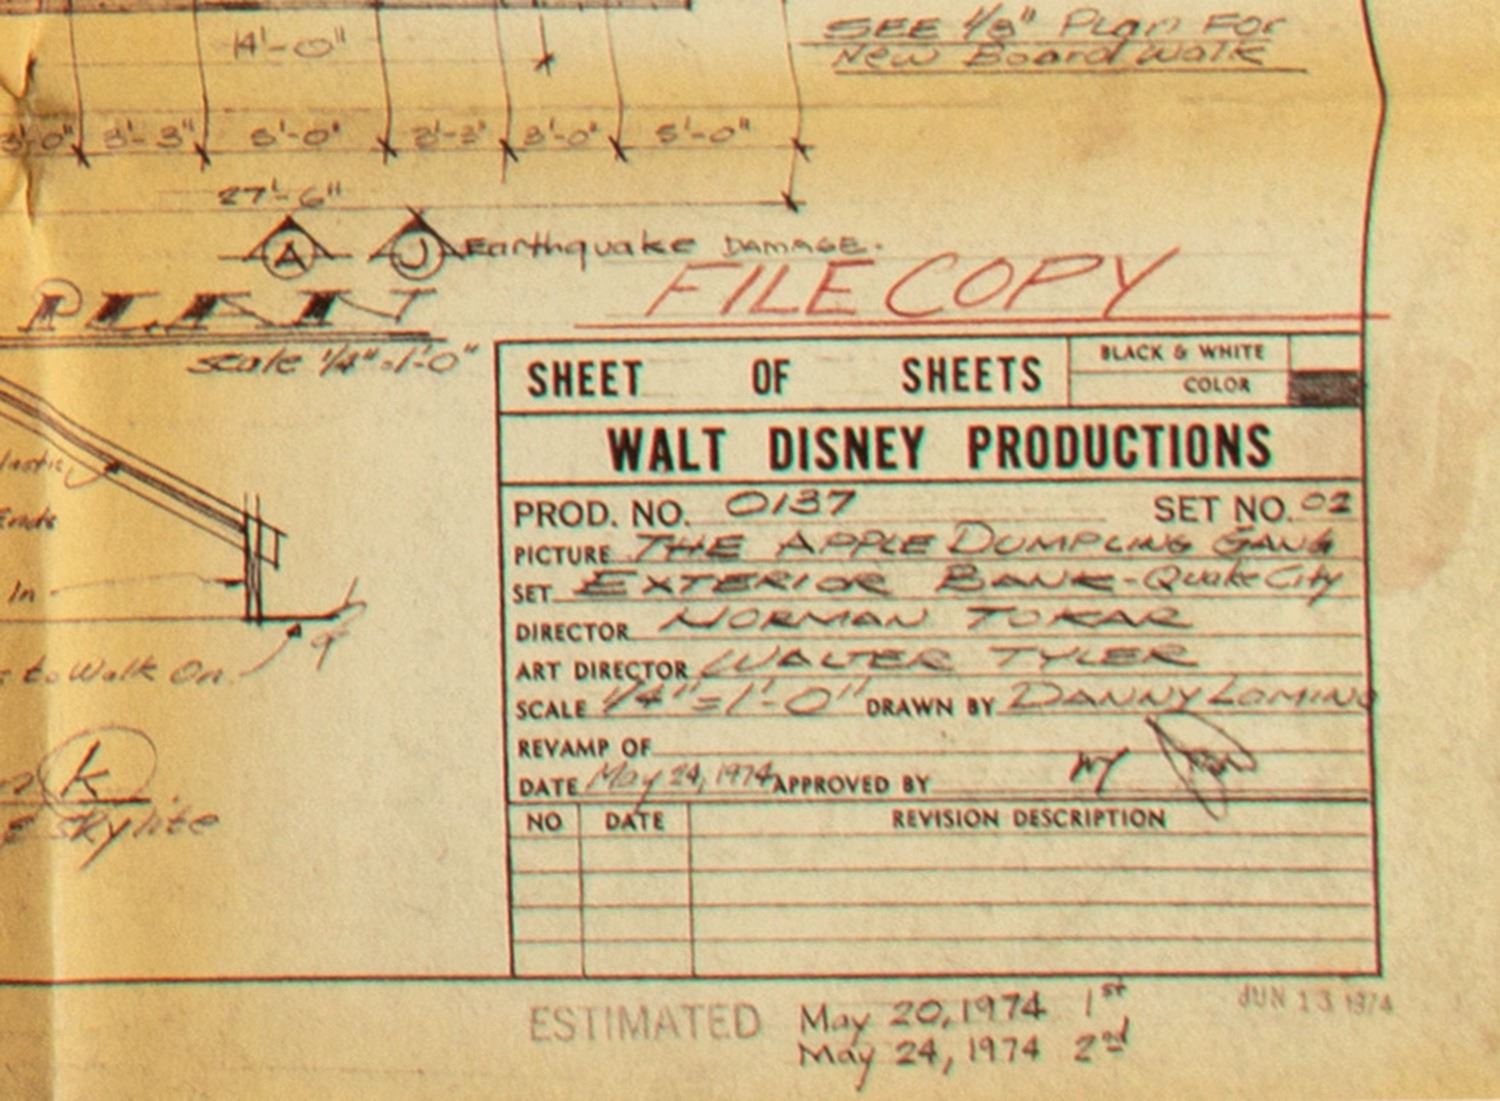 14'-0"
SEE 1/8" Plan For
New Board Walk
3'-0" 3'-3" 5'-0" 3'-3" 3'-0" 5'-0"
27'-6"
A J Earthquake DAMAGE.
FILE COPY
PLAN
scale 1/4"=1'-0"
SHEET OF SHEETS
BLACK & WHITE
COLOR
WALT DISNEY PRODUCTIONS
PROD. NO. 0137 SET NO. 02
PICTURE THE APPLE DUMPLING GANG
SET EXTERIOR BANK-Quake City
DIRECTOR NORMAN TOKAR
ART DIRECTOR WALTER TYLER
SCALE 1/4"=1'-0" DRAWN BY DANNY LOMINO
REVAMP OF
DATE May 24, 1974 APPROVED BY
NO DATE REVISION DESCRIPTION
Ends
In
to Walk On
k
Skylite
ESTIMATED May 20, 1974 1st
May 24, 1974 2nd
JUN 13 1974